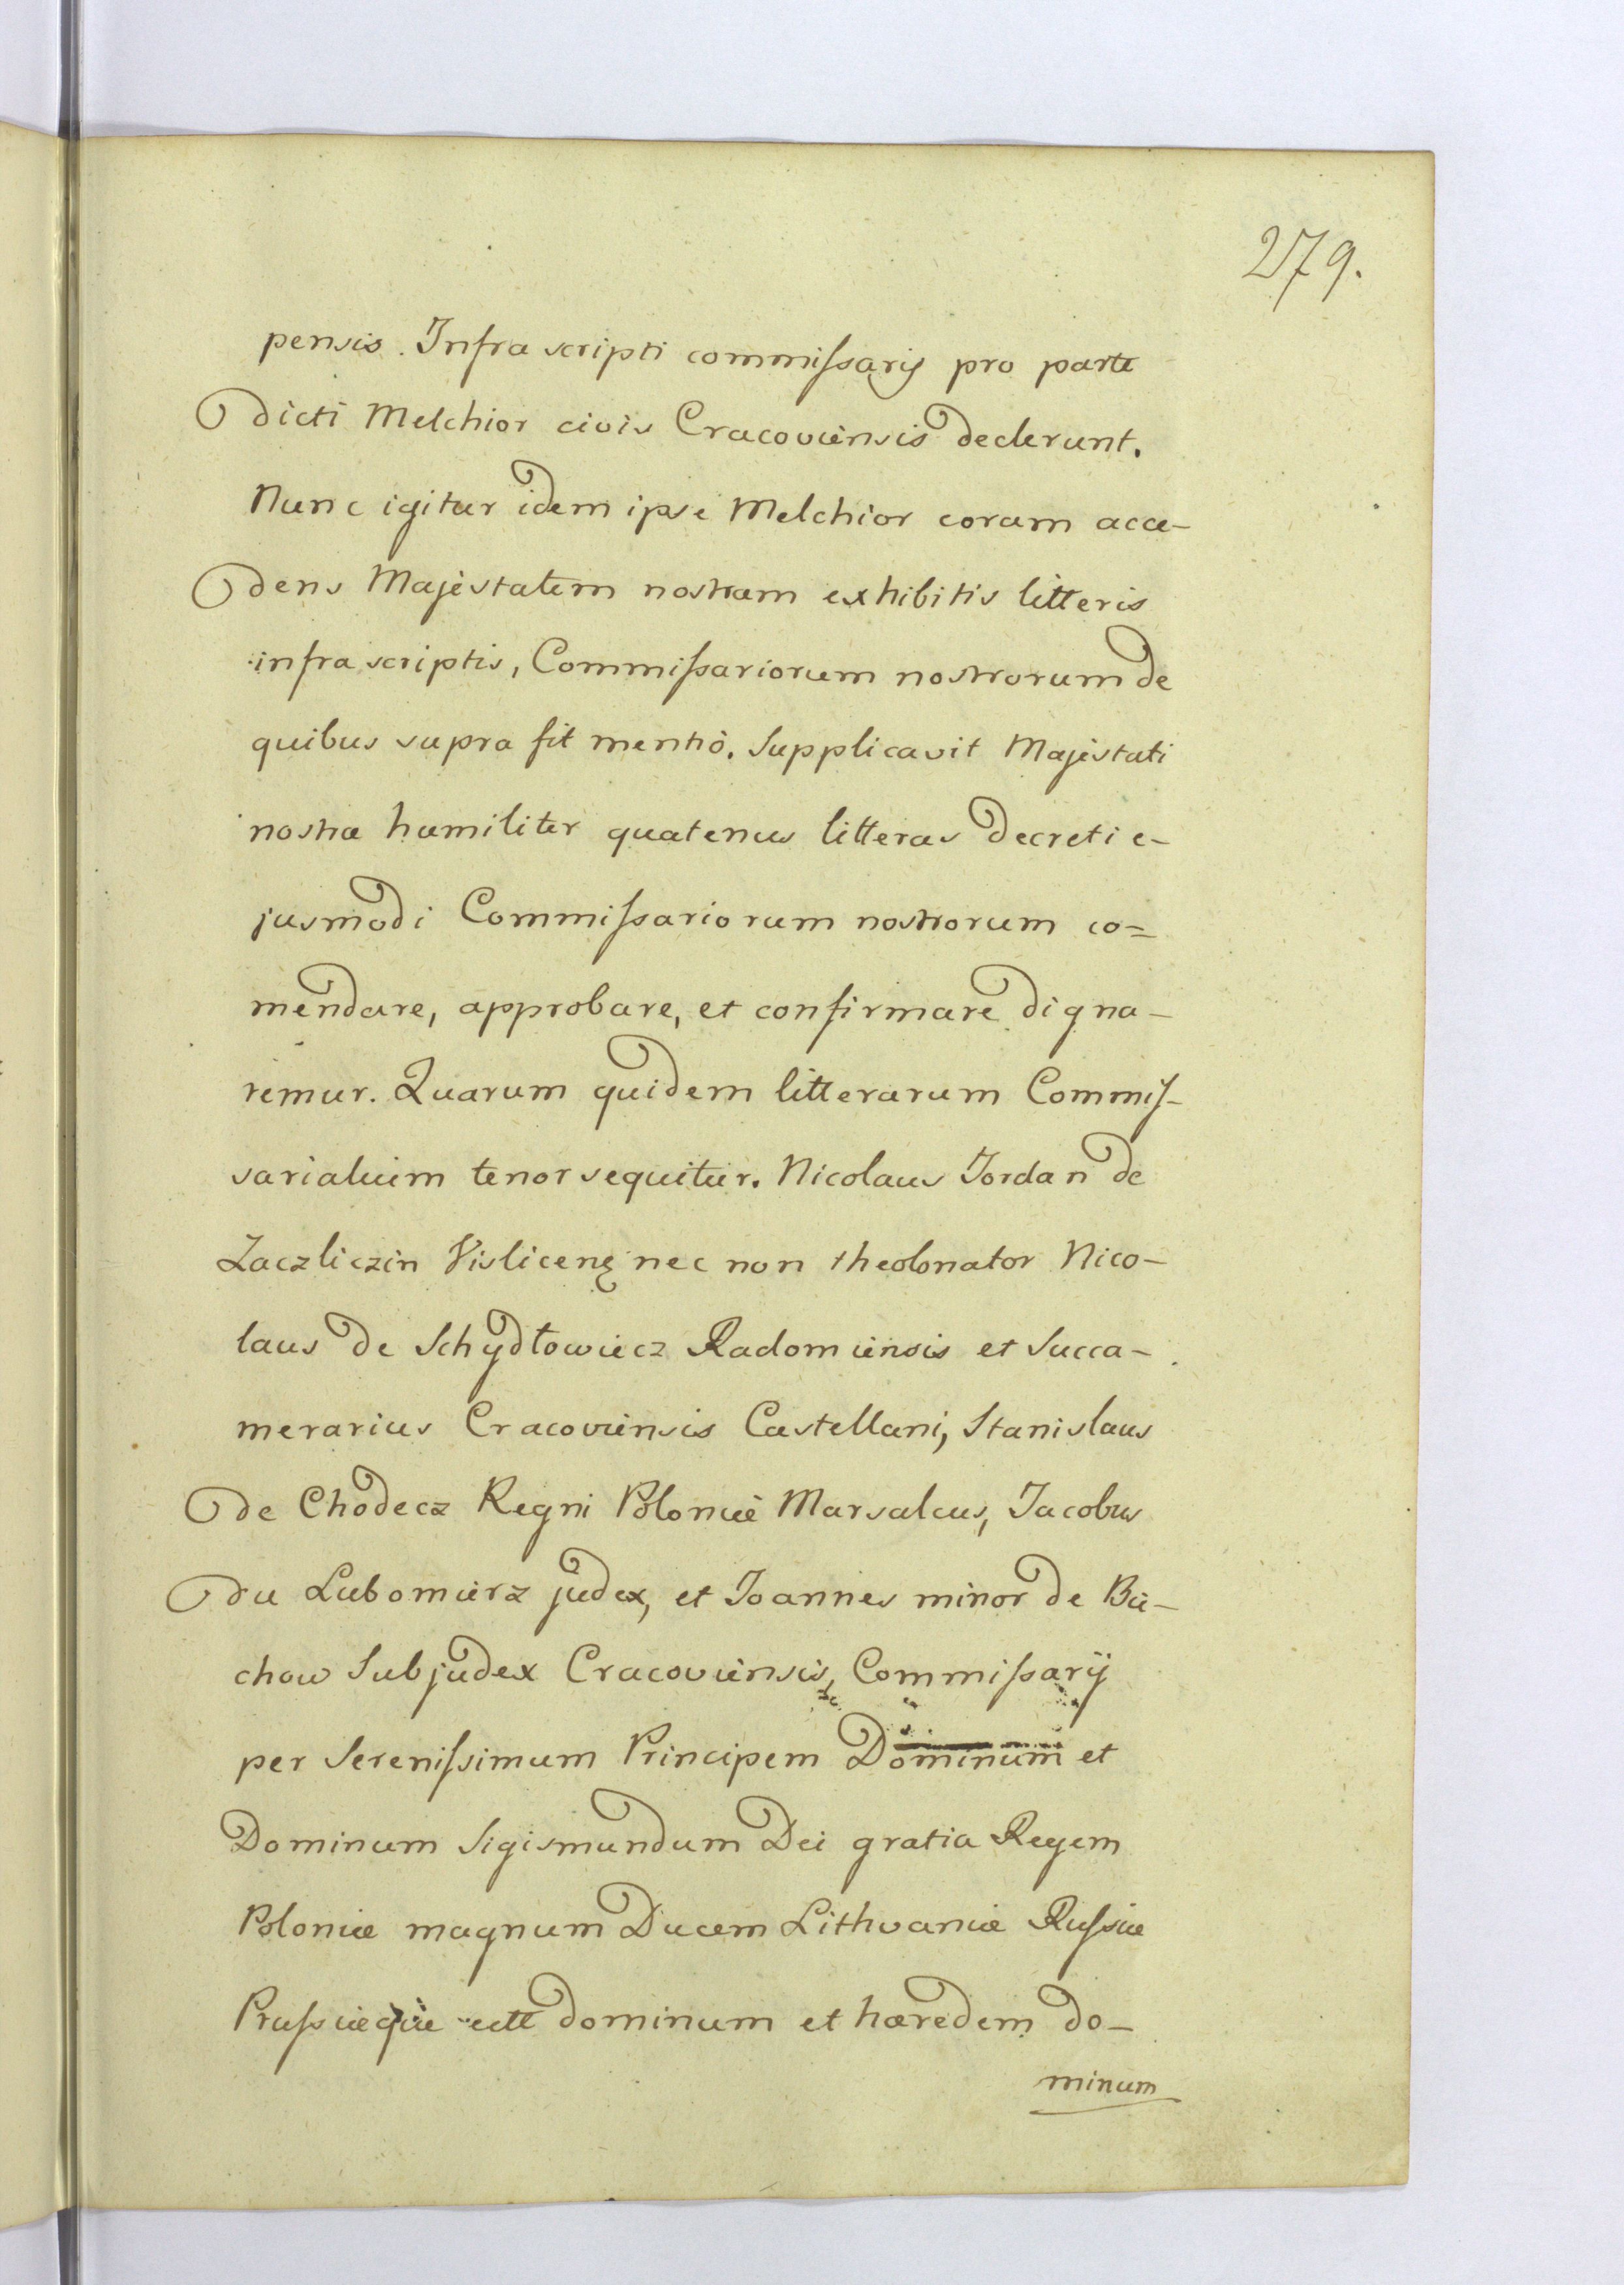 279.
pensis. Infra scripti commiſsarij pro parte
dicti Melchior civis Cracoviensis dederunt.
Nunc igitur idem ipse Melchior coram acce-
dens Majestatem nostram exhibitis litteris
infra scriptis, Commiſsariorum nostrorum de
quibus supra fit mentio. Supplicavit Majestati
nostræ humiliter quatenus litteras decreti e-
jusmodi Commiſsariorum nostrorum co=
mendare, approbare, et confirmare digna-
remur. Quarum quidem litterarum Commiſ-
sarialium tenor sequitur. Nicolaus Jordan de
Zaczliczin Vislicenę nec non theolonator Nico-
laus de Schydłowiecz Radomiensis et Succa-
merarius Cracoviensis Castellani, Stanislaus
de Chodecz Regni Poloniæ Marsalcus, Jacobus
du Lubomierz judex, et Joannes minor de Bie-
chow Subjudex Cracoviensis, Commiſsarij
per Sereniſsimum Principem Dominum et
Dominum Sigismundum Dei gratia Regem
Poloniæ magnum Ducem Lithvaniæ Ruſsiæ
Pruſsiæque dominum et hæredem do-
minum